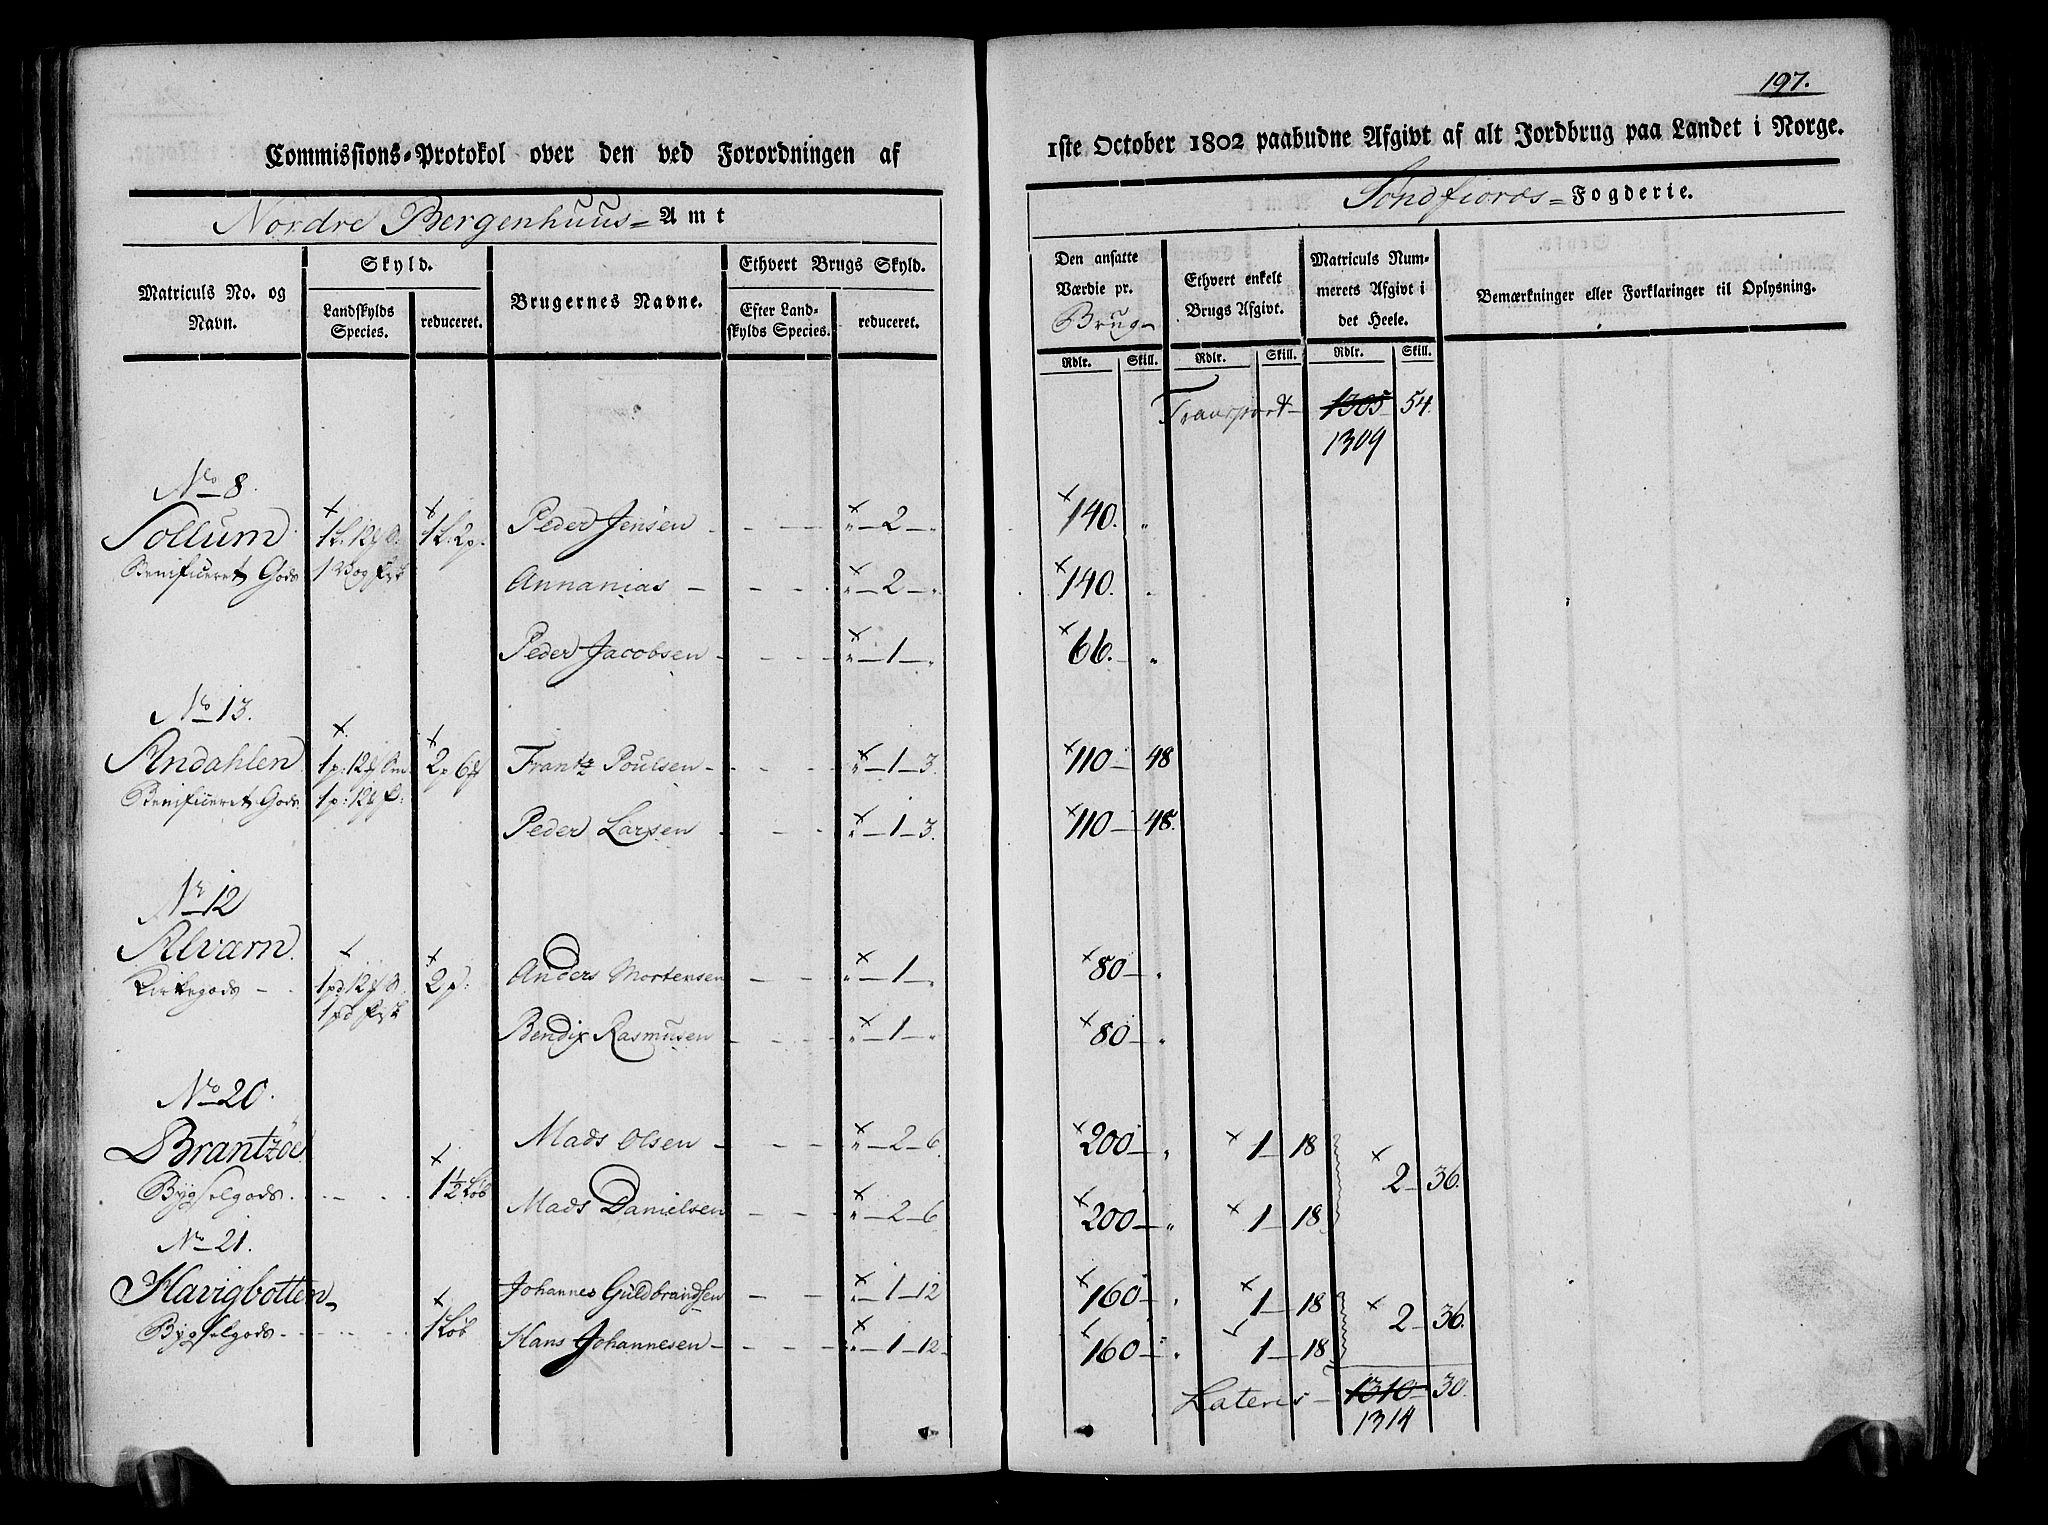 197.
Commissions-Protokol over den ved Forordningen af 1ste October 1802 paabudne Afgivt af alt Jordbrug paa Landet i Norge.
Nordre Bergenhuus= Amt
Søndfiords= Fogderie.
Matriculs No. og Navn.
Skyld.
Landskylds Species.
reduceret.
Brugernes Navne.
Ethvert Brugs Skyld.
Efter Landskylds Species.
reduceret.
Den ansatte Værdie pr. Brug
Rdlr. Skill.
Ethvert enkelt Brugs Afgivt.
Rdlr. Skill.
Matriculs Nummerets Afgivt i det Heele.
Rdlr. Skill.
Bemærkninger eller Forklaringer til Oplysning.
Transport 1305 54.
1309
No 8.
Sollum 1L. 2p. Peder Jensen " 2 " 140. "
Benificeret Gods Annanias " 2 " 140. "
Peder Jacobsen " 1 " 66. "
No 13.
Andahlen Frantz Poulsen " 1 3. 110 48
Benificeret Gods
Peder Larsen " 1 3. 110 48.
Nr 12
Alvarn 2p. Anders Mortensen " 1 " 80 "
Kirkegods
Bendix Rasmusen " 1 " 80 "
No 20.
Brantzöe 1½ Løb Mads Olsen " 2 6. 200 " 1 18
2 36.
Bygselgods
Mads Danielsen " 2 6 200 " 1 18
No 21.
Havigbotten 1 Løb Johannes Guldbrandsen " 1 12 160 " 1 18
2 36.
Bygselgods Hans Johannesen " 1 12 160 " 1 18
Lateris 1310 30.
1314